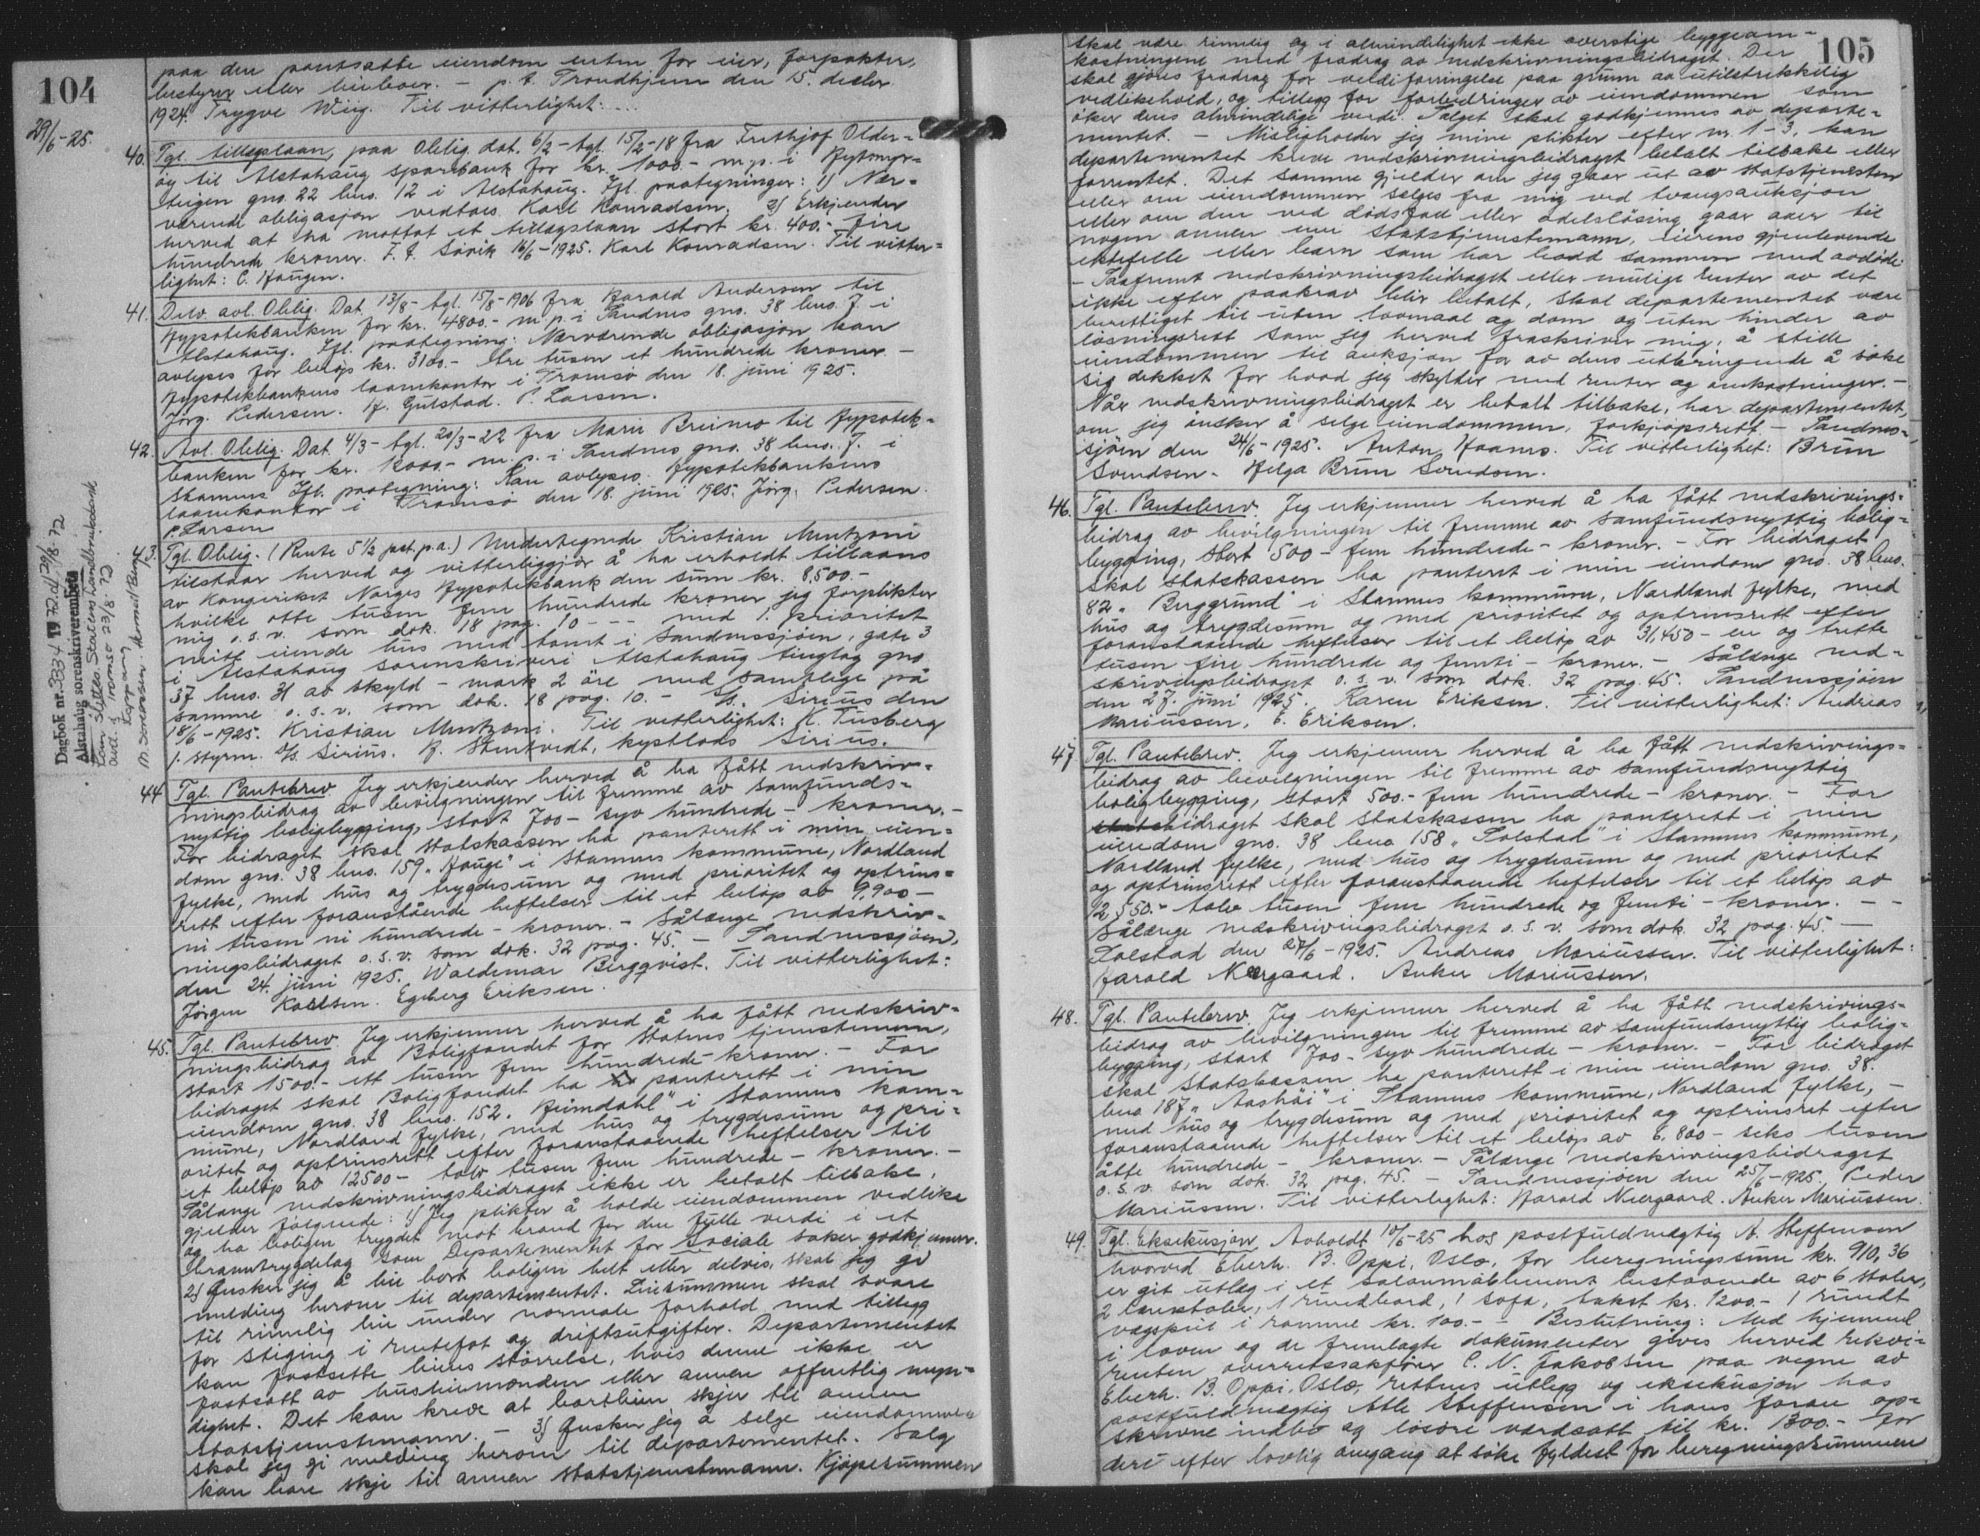 104
29/6-25.
paa den pantsatte eiendom enten for eier, forpakter,
bestyrer eller leieboer. - p. t. Trondhjem den 15. decbr.
1924. Trygve Wiig. Til vitterlighet: ...
40. Tgl. tillægslaan, paa Oblig. dat. 6/2 - tgl. 15/2-18 fra Frithjof Older-
øy til Alstahaug sparebank for kr. 1000.- m. p. i
teigen gno. 22 bno. 12 i Alstahaug. Ifl. paategninger: 1) Nær-
værende obligasjon vedtaes. Karl Konradsen. 2) Erkjender
herved at ha mottat et tillægslaan stort kr. 400.- fire
hundrede kroner. F. t. Søvik 16/6-1925. Karl Konradsen. Til vitter-
lighet: C. Haugen.
41. Delv. avl. Oblig. Dat. 13/8 - tgl. 15/8-1906 fra Harald Andersen til
Hypotekbanken for kr. 4800.- m. p. i Sandnes gno. 38 bno. 7. i
Alstahaug. Ifl. paategning: Nærværende obligasjon kan
avlyses for beløp kr. 3100.- tre tusen et hundrede kroner. -
Hypotekbankens laanekontor i Tromsø den 18. juni 1925.
Jørg. Pedersen. H. Gulstad. P. Larsen.
42. Avl. Oblig. Dat. 4/3 - tgl. 20/3-22 fra Marie Breimo til Hypotek-
banken for kr. 12000.- m. p. i Sandnes gno. 38 bno. 7. i
Stamnes Ifl. paategning: Kan avlyses. Hypotekbankens
laanekontor i Tromsø den 18. juni 1925. Jørg. Pedersen.
P. Larsen
43. Tgl. Oblig. (Rente 5 1/2 pct. p. a.) Undertegnede Kristian Muntzoni
tilstaar herved og vitterliggjør å ha erholdt tillaans
av Kongeriket Norges Hypotekbank den sum kr. 8,500.-
hvilke otte tusen fem hundrede kroner jeg forplikter
mig o. s. v. som dok. 18 pag. 10 - - - med 1. prioritet
mitt eiende hus med tomt i Sandnessjøen, gate 3
i Alstahaug sorenskriveri Alstahaug tinglag gno.
37 bno. 31 av skyld - mark 2 øre med samtlige på
samme o. s. v. som dok. 18 pag. 10. - S/s. Sirius den
18/6-1925. Kristian Muntzoni. Til vitterlighet: A. Tusberg
1. styrm. S/s Sirius. H. Stentvedt, kystlods Sirius.
Dagbok nr. 3334 19 72 d/ 29/8-72
Alstahaug sorenskriverembete
Lån slettes Statens Landbruksbank
avd. i Tromsø 23/8-72
44. Tgl. Pantebrev. Jeg erkjender herved å ha fått nedskriv-
ningsbidrag av bevilgningen til fremme av samfunds-
nyttig boligbygging, stort 700 - syv hundrede - kroner. -
For bidraget skal statskassen ha panterett i min eien-
dom gno. 38 bno. 159 "Hauge" i Stamnes kommune, Nordland
fylke, med hus og brygdesum og med prioritet og optrins-
rett efter foranstående heftelser til et beløp av 9,900 -
ni tusen ni hundrede - kroner. - Sålænge nedskriv-
ningsbidraget o. s. v. som dok. 32 pag. 45. - Sandnessjøen,
den 24. juni 1925. Waldemar Bergqvist. Til vitterlighet:
Jørgen Karlsen. Egeberg Eriksen.
45. Tgl. Pantebrev. Jeg erkjenner herved å ha fått nedskriv-
ningsbidrag av Boligfondet for Statens tjenestemenn,
stort 1500.- ett tusen fem hundrede - kroner. - For
bidraget skal Boligfondet ha panterett i min
eiendom gno. 38 bno. 152. "Heimdahl" i Stamnes kom-
mune, Nordland fylke, med hus og brygdesum og pri-
oritet og optrinsrett efter foranstaaende heftelser til
et beløp av 12500 - tolv tusen fem hundrede - kroner. -
Sålange nedskrivningsbidraget ikke er betalt tilbake,
gjelder følgende: 1) Jeg plikter å holde eiendommen vedlike
og ha boligen trygdet mot brand for den fulle verdi i et
branntrygdelag som Departementet for Sociale saker godkjenner.
2) Ønsker jeg å leie bort boligen helt eller delvis, skal jeg gi
melding herom til departementet. Leiesummen skal svare
til rimelig leie under normale forhold med tillegg
for stigning i rentefot og driftsutgifter. Departementet
kan fastsette leiens størrelse, hvis denne ikke er
fastsatt av husleienevnden eller annen offentlig myn-
dighet. Det kan kreve at bortleien skjer til annen
statstjenestemann. - 3) Ønsker jeg å selge eiendommen
skal jeg gi melding herom til departementet. Salg
kan bare skje til annen statstjenestemann. Kjøpesummen
105
skal være rimelig og i almindelighet ikke overstige byggeom-
kostningene med fradrag av nedskrivningsbidraget. Der
skal gjøres fradrag for verdiforringelse paa grunn av utilstrekkelig
vedlikehold, og tillegg for forbedringer av eiendommen som
øker dens almindelige verdi. Salget skal godkjennes av departe-
mentet. - Misligholder jeg mine plikter efter nr. 1-3, kan
departementet kreve nedskrivningsbidraget betalt tilbake eller
forrentet. Det samme gjelder om jeg gaar ut av statstjenesten
eller om eiendommen selges fra mig ved tvangsauksjon
eller om den ved dødsfall eller odelsløsing gaar over til
nogen annen enn statstjenestemann, eierens gjenlevende
ektefelle eller barn som har bodd sammen med avdøde.
- Saafremt nedskrivningsbidraget eller mulige renter av det
ikke efter paakrav blir betalt, skal departementet være
berettiget til uten lovmaal og dom og uten hinder av
løsningsrett som jeg herved fraskriver mig, å stille
eiendommen til auksjon for av dens utbringende å søke
sig dekket for hvad jeg skylder med renter og omkostninger. -
Når nedskrivningsbidraget er betalt tilbake, har departementet,
om jeg ønsker å selge eiendommen, forkjøpsrett. - Sandnes-
sjøen den 24/6-1925. Anton Haanes. Til vitterlighet: Brun
Svendsen. Helga Brun Svendsen.
46. Tgl. Pantebrev. Jeg erkjenner herved å ha fått nedskrivings-
bidrag av bevilgningen til fremme av samfundsnyttig bolig-
bygging, stort 500 - fem hundrede - kroner. - For bidraget
skal statskassen ha panteret i min eiendom gno. 38 bno.
82 "Berggrund" i Stamnes kommune, Nordland fylke, med
hus og brygdesum og med prioritet og optrinsrett efter
foranstaaende heftelser til et beløp av 31,450 - en og trette
tusen fire hundrede og femti - kroner. - Sålænge ned-
skrivingsbidraget o. s. v. som dok. 32 pag. 45. Sandnessjøen
den 27. juni 1925. Karen Eriksen. Til vitterlighet: Andreas
Mariussen, E. Eriksen.
47. Tgl. Pantebrev. Jeg erkjenner herved å ha fått nedskrivings-
bidrag av bevilgningen til fremme av samfundsnyttig
boligbygging, stort 500.- fem hundrede - kroner. - For
bidraget skal Statskassen ha panterett i min
eiendom gno. 38 bno 158 "Solstad" i Stamnes kommune,
Nordland fylke, med hus og brygdesum og med prioritet
og optrinsrett efter foranstaaende heftelser til et beløp av
12550.- tolv tusen fem hundrede og femti - kroner. - -
Sålænge nedskrivingsbidraget o. s. v. som dok. 32 pag. 45. -
Solstad den 27/6-1925. Andreas Mariussen. Til vitterlighet:
Harald Neergaard. Anker Mariussen.
48. Tgl. Pantebrev. Jeg erkjenner herved å ha fått nedskrivings-
bidrag av bevilgningen til fremme av samfundsnyttig bolig-
bygging, stort 700 - syv hundrede - kroner. - For bidraget
skal Statskassen ha panterett i min eiendom gno. 38.
bno 187 "Aashøi" i Stamnes kommune, Nordland fylke, -
med hus og brygdesum og med prioritet og optrinsret efter
foranstaaende heftelser til et beløp av 6.800 - seks tusen
åtte hundrede - kroner. - Sålænge nedskrivingsbidraget
o. s. v. som dok. 32 pag. 45. - Sandnessjøen den 25/6-1925. Peder
Mariussen. Til vitterlighet: Harald Neergaard. Anker Mariussen.
49. Tgl. Eksekusjon, Avholdt 10/6-25 hos postfuldmægtig A. Steffensen
hvorved Eberh. B. Oppi, Oslo, for beregningssum kr. 910,36
er git utlæg i et salonmøblement bestaaende av 6 stoler,
2 lænestoler, 1 rundbord, 1 sofa, takst kr. 1200.- 1 rundt
vægspeil i ramme kr. 100.- - Beslutning: Med hjemmel
i loven og de fremlagte dokumenter gives herved rekvi-
renten overretssakfører C. N. Jakobsen paa vegne av
Eberh. B. Oppi, Oslo, rettens utlegg og eksekusjon hos
postfuldmægtig Atle Steffensen i hans foran op-
skrevne indbo og løsøre værdsatt til kr. 1300.- for
deri efter lovlig omgang at søke fyldest for beregningssummen